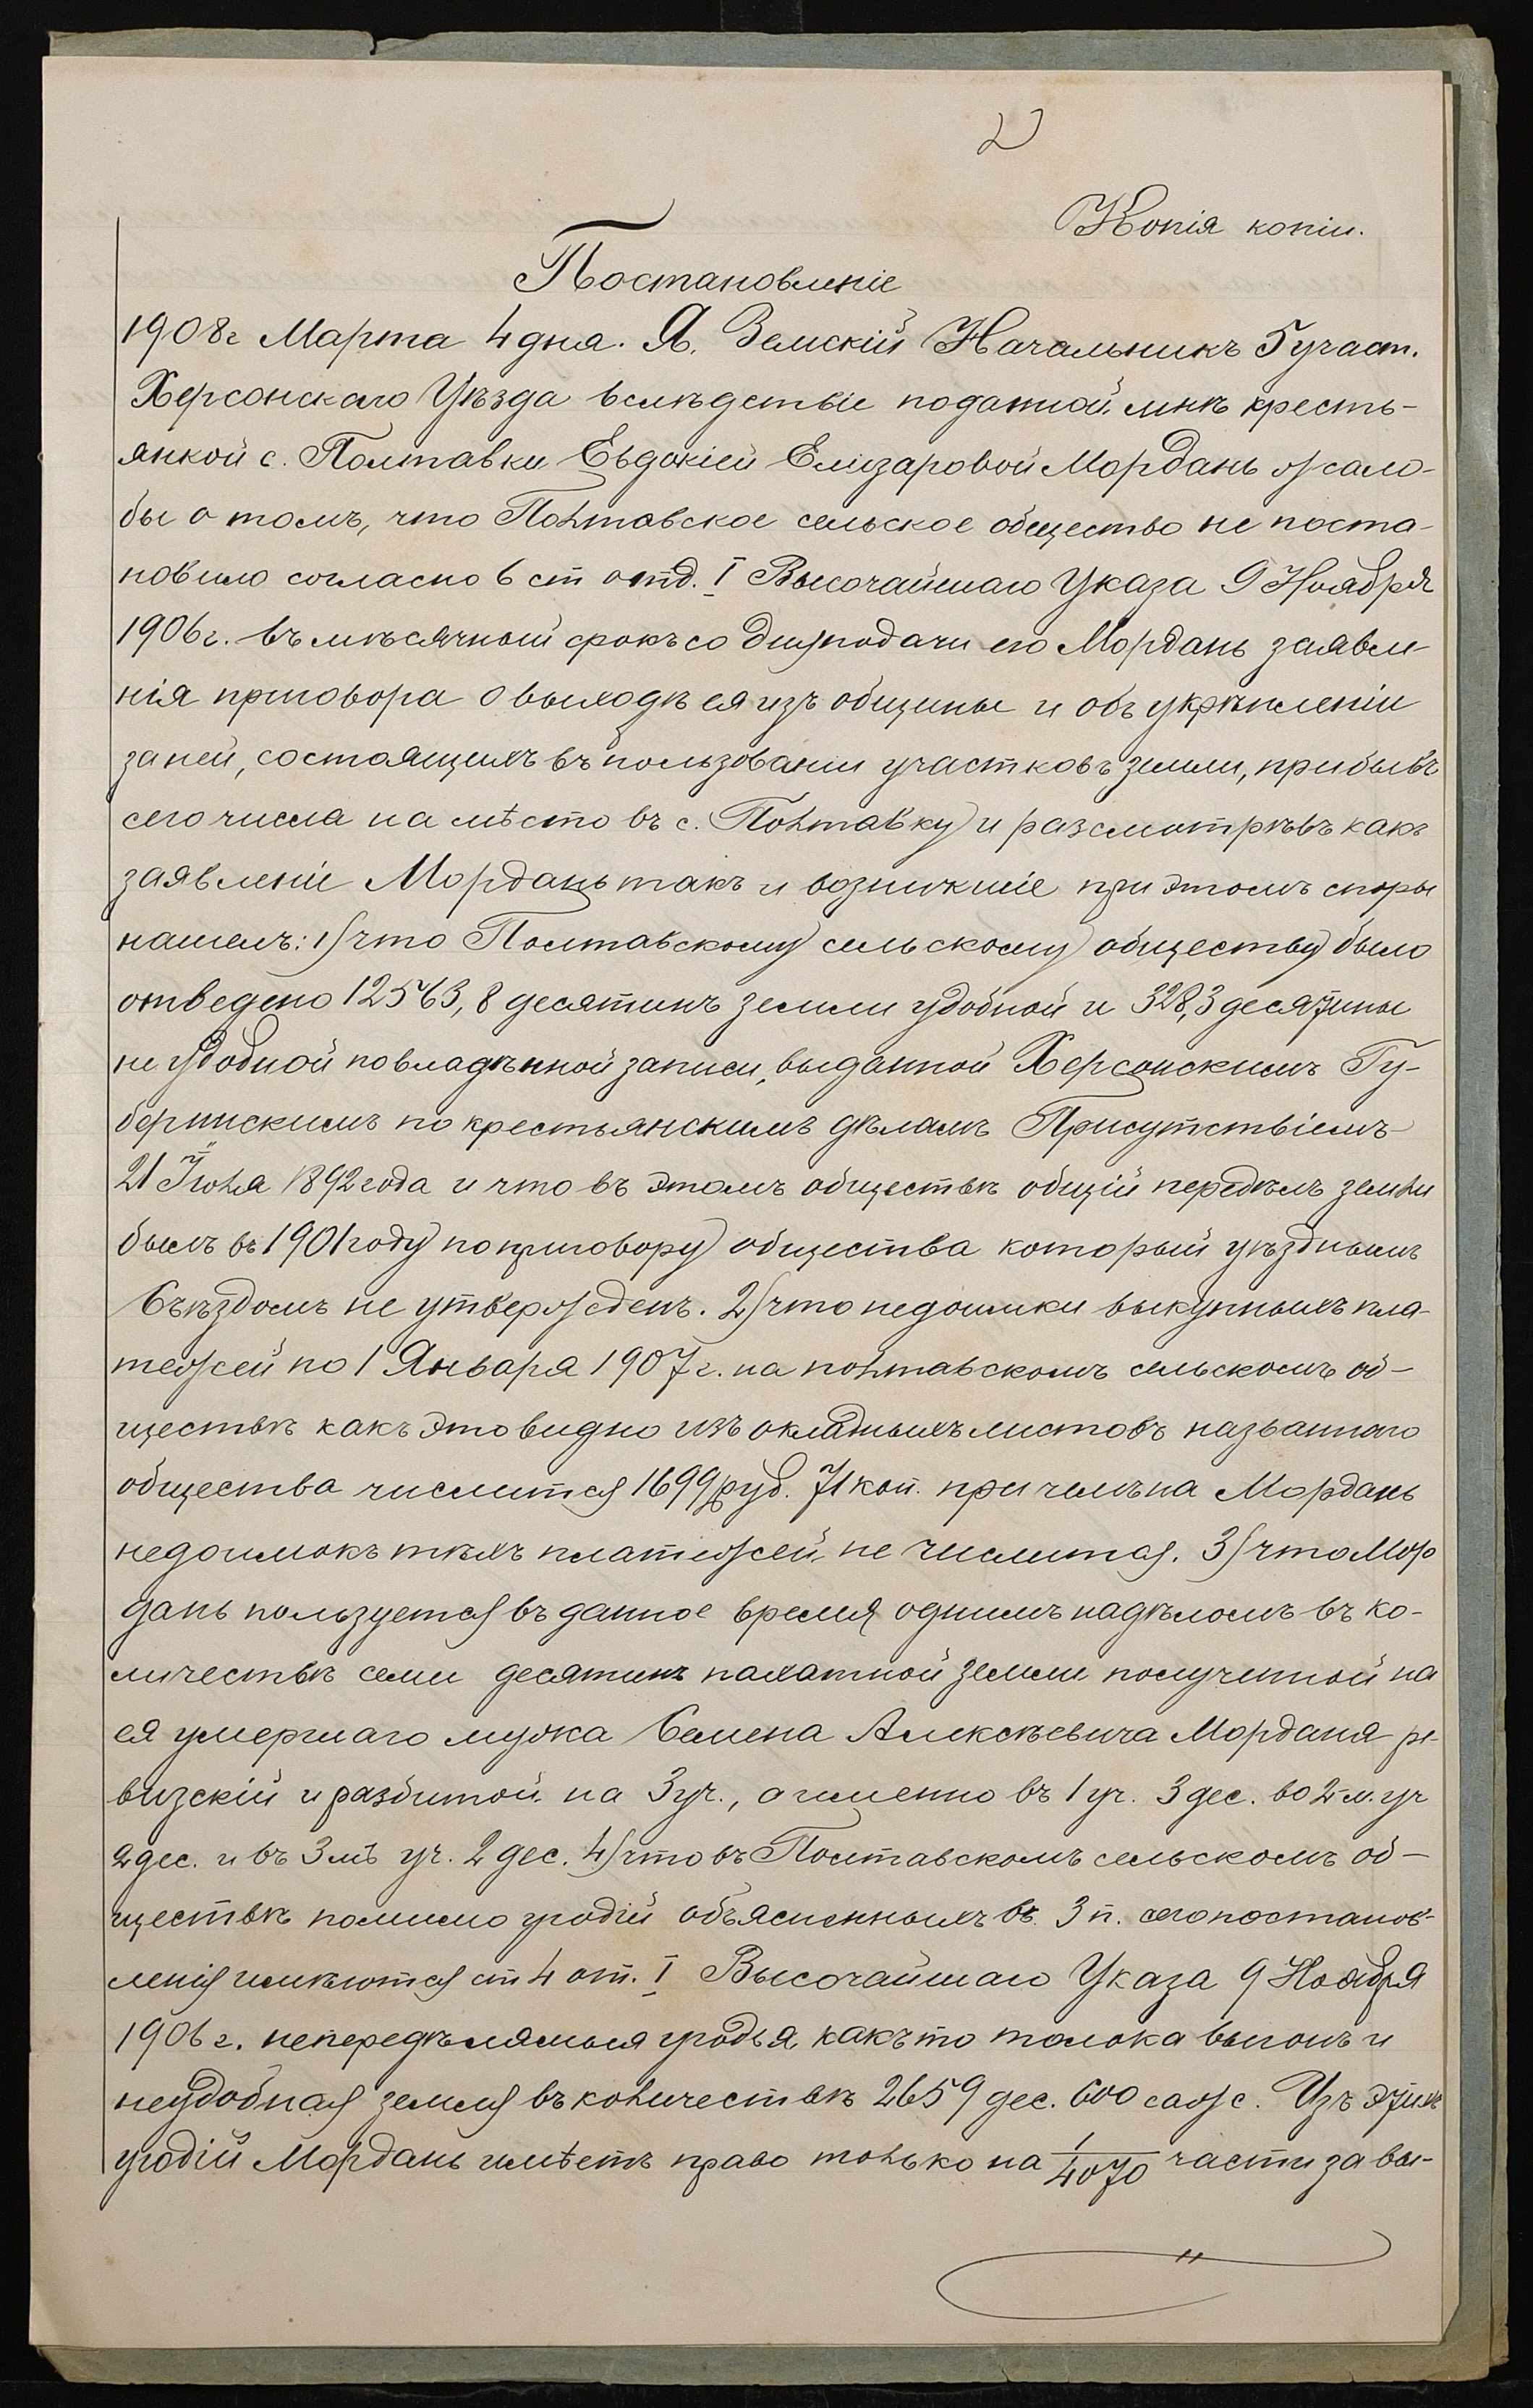 2
Копія копіи.
Постановленіе
1908г Марта 4 дня. Я. Земскій Начальникъ 5 участ.
Херсонскаго Уѣзда вслѣдствіе поданной мнѣ кресть-
янкой с. Полтавки Евдокіей Елизаровой Мордань жало-
бы о томъ, что Полтавское сельское общество не поста-
новило согласно 6 ст отд. I Высочайшаго Указа 9 Ноября
1906г. въ мѣсячный срокъ со дня подачи ею Мордань заявле-
нія приговора о выходѣ ея изъ общины и объ укрѣпленіи
за ней, состоящихъ въ пользованіи участковъ земли, прибывъ
сего числа на мѣсто въ с. Полтавку и разсмотрѣвъ какъ
заявленіе Мордань такъ и возникшіе при этомъ споры
нашелъ: 1) что Полтавскому сельскому обществу было
отведено 12563,8 десятинъ земли удобной и 328,3 десятины
не удобной по владѣнной записи, выданной Херсонскимъ Гу-
бернскимъ по крестьянскимъ дѣламъ Присутствіемъ
21 Іюля 1892 года и что въ этомъ обществѣ общій передѣлъ земли
былъ въ 1901 году по приговору общества который уѣзднымъ
Съѣздомъ не утвержденъ. 2) что недоимки выкупныхъ пла-
тежей по 1 Января 1907г. на полтавскомъ сельскомъ об-
ществѣ какъ это видно изъ окладныхъ листовъ названнаго
общества числится 1699 руб. 71 коп. при чемъ на Мордань
недоимокъ тѣхъ платежей не числится. 3) что Мор
дань пользуется въ данное время однимъ надѣломъ въ ко-
личествѣ семи десятинъ пахатной земли полученной на
ея умершаго мужа Семена Алексѣевича Морданя ре-
визскій и разбитой на 3 уч., а именно въ 1 уч. 3 дес. во 2-м. уч
2 дес. и въ 3мъ уч. 2 дес. 4) что въ Полтавскомъ сельскомъ об-
ществѣ помимо угодій объясненныхъ въ 3 п. сего постанов-
ленія имѣются ст 4 от. I Высочайшаго Указа 9 Ноября
1906г. непередѣляемыя угодья, какъ то толока выгонъ и
неудобная земля въ количествѣ 2659 дес. 600 саж. Изъ этихъ
угодій Мордань имѣетъ право только на 1/4070 части за вы-